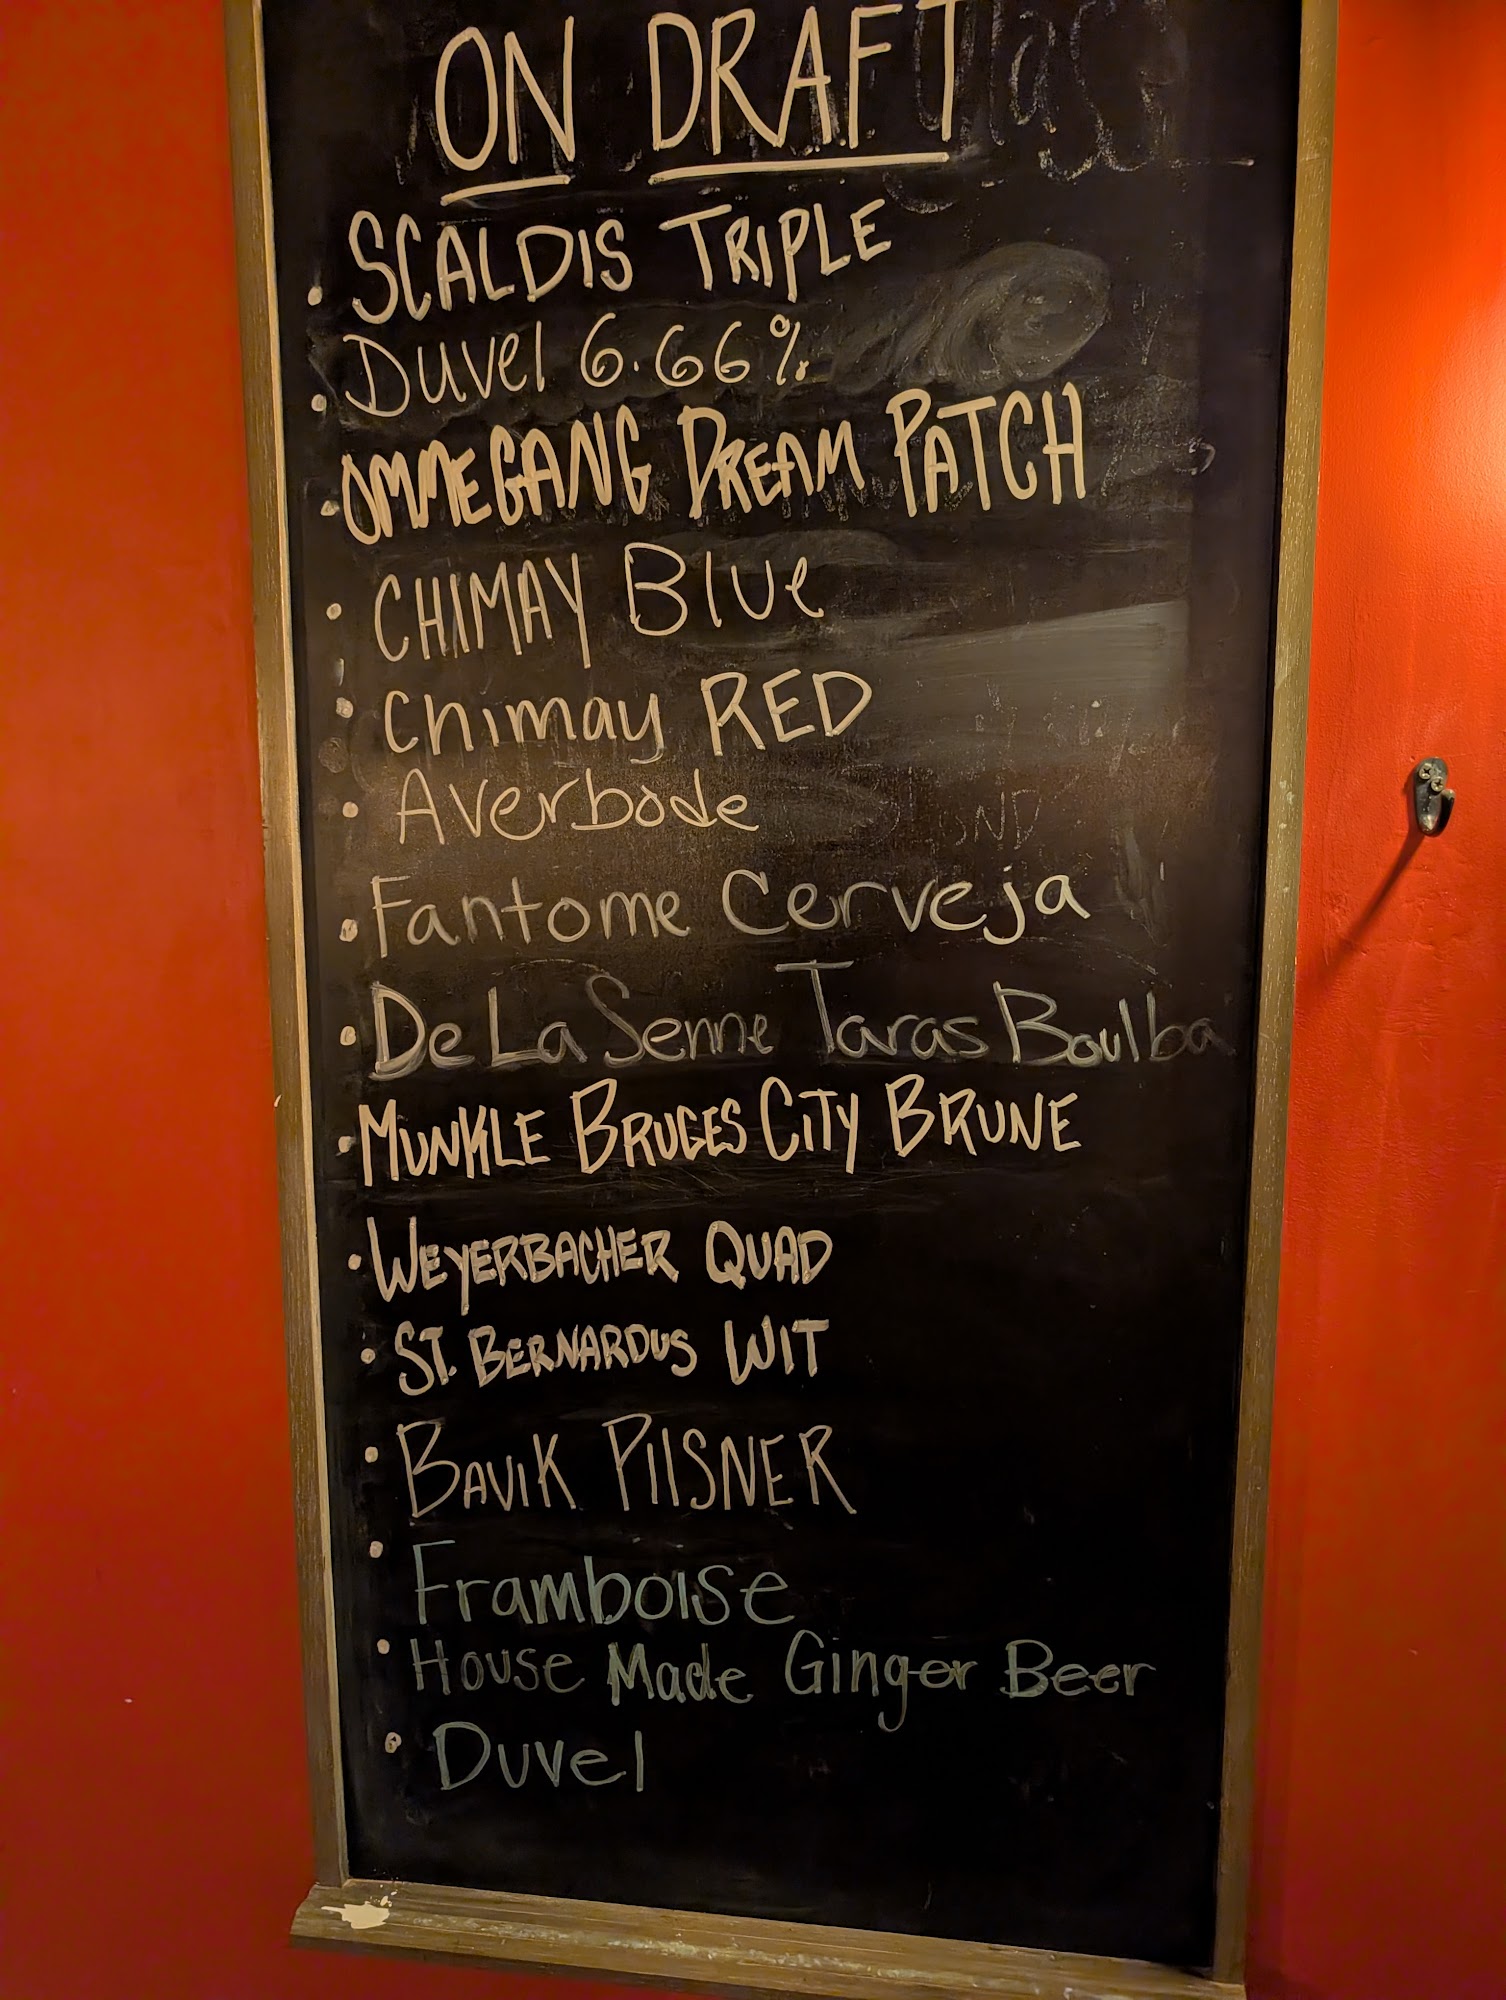 ON DRAFT
• SCALDIS TRIPLE
• Duvel 6.66%
• OMMEGANG DREAM PATCH
• CHIMAY Blue
• Chimay RED
• Averbode
• Fantome Cerveja
• De La Senne Taras Boulba
• MUNKLE BRUGES CITY BRUNE
• WEYERBACHER QUAD
• ST. BERNARDUS WIT
• BAVIK PILSNER
• Framboise
• House Made Ginger Beer
• Duvel